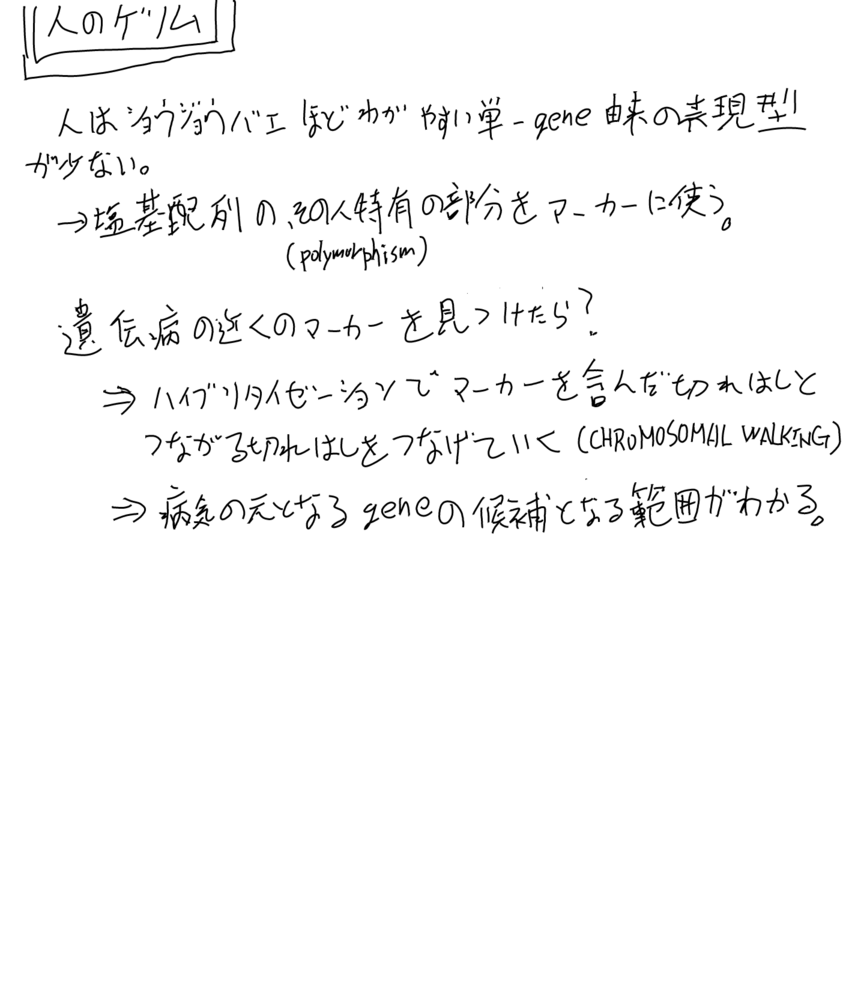 人のゲノム
人はショウジョウバエほどわかやすい単一gene由来の表現型
が少ない。
→塩基配列の、その人特有の部分をマーカーに使う。
(polymorphism)
遺伝病の近くのマーカーを見つけたら?
⇒ハイブリタイゼーションでマーカーを含んだ切れはしと
つながる切れはしをつなげていく(CHROMOSOMAL WALKING)
⇒病気の元となるgeneの候補となる範囲がわかる。